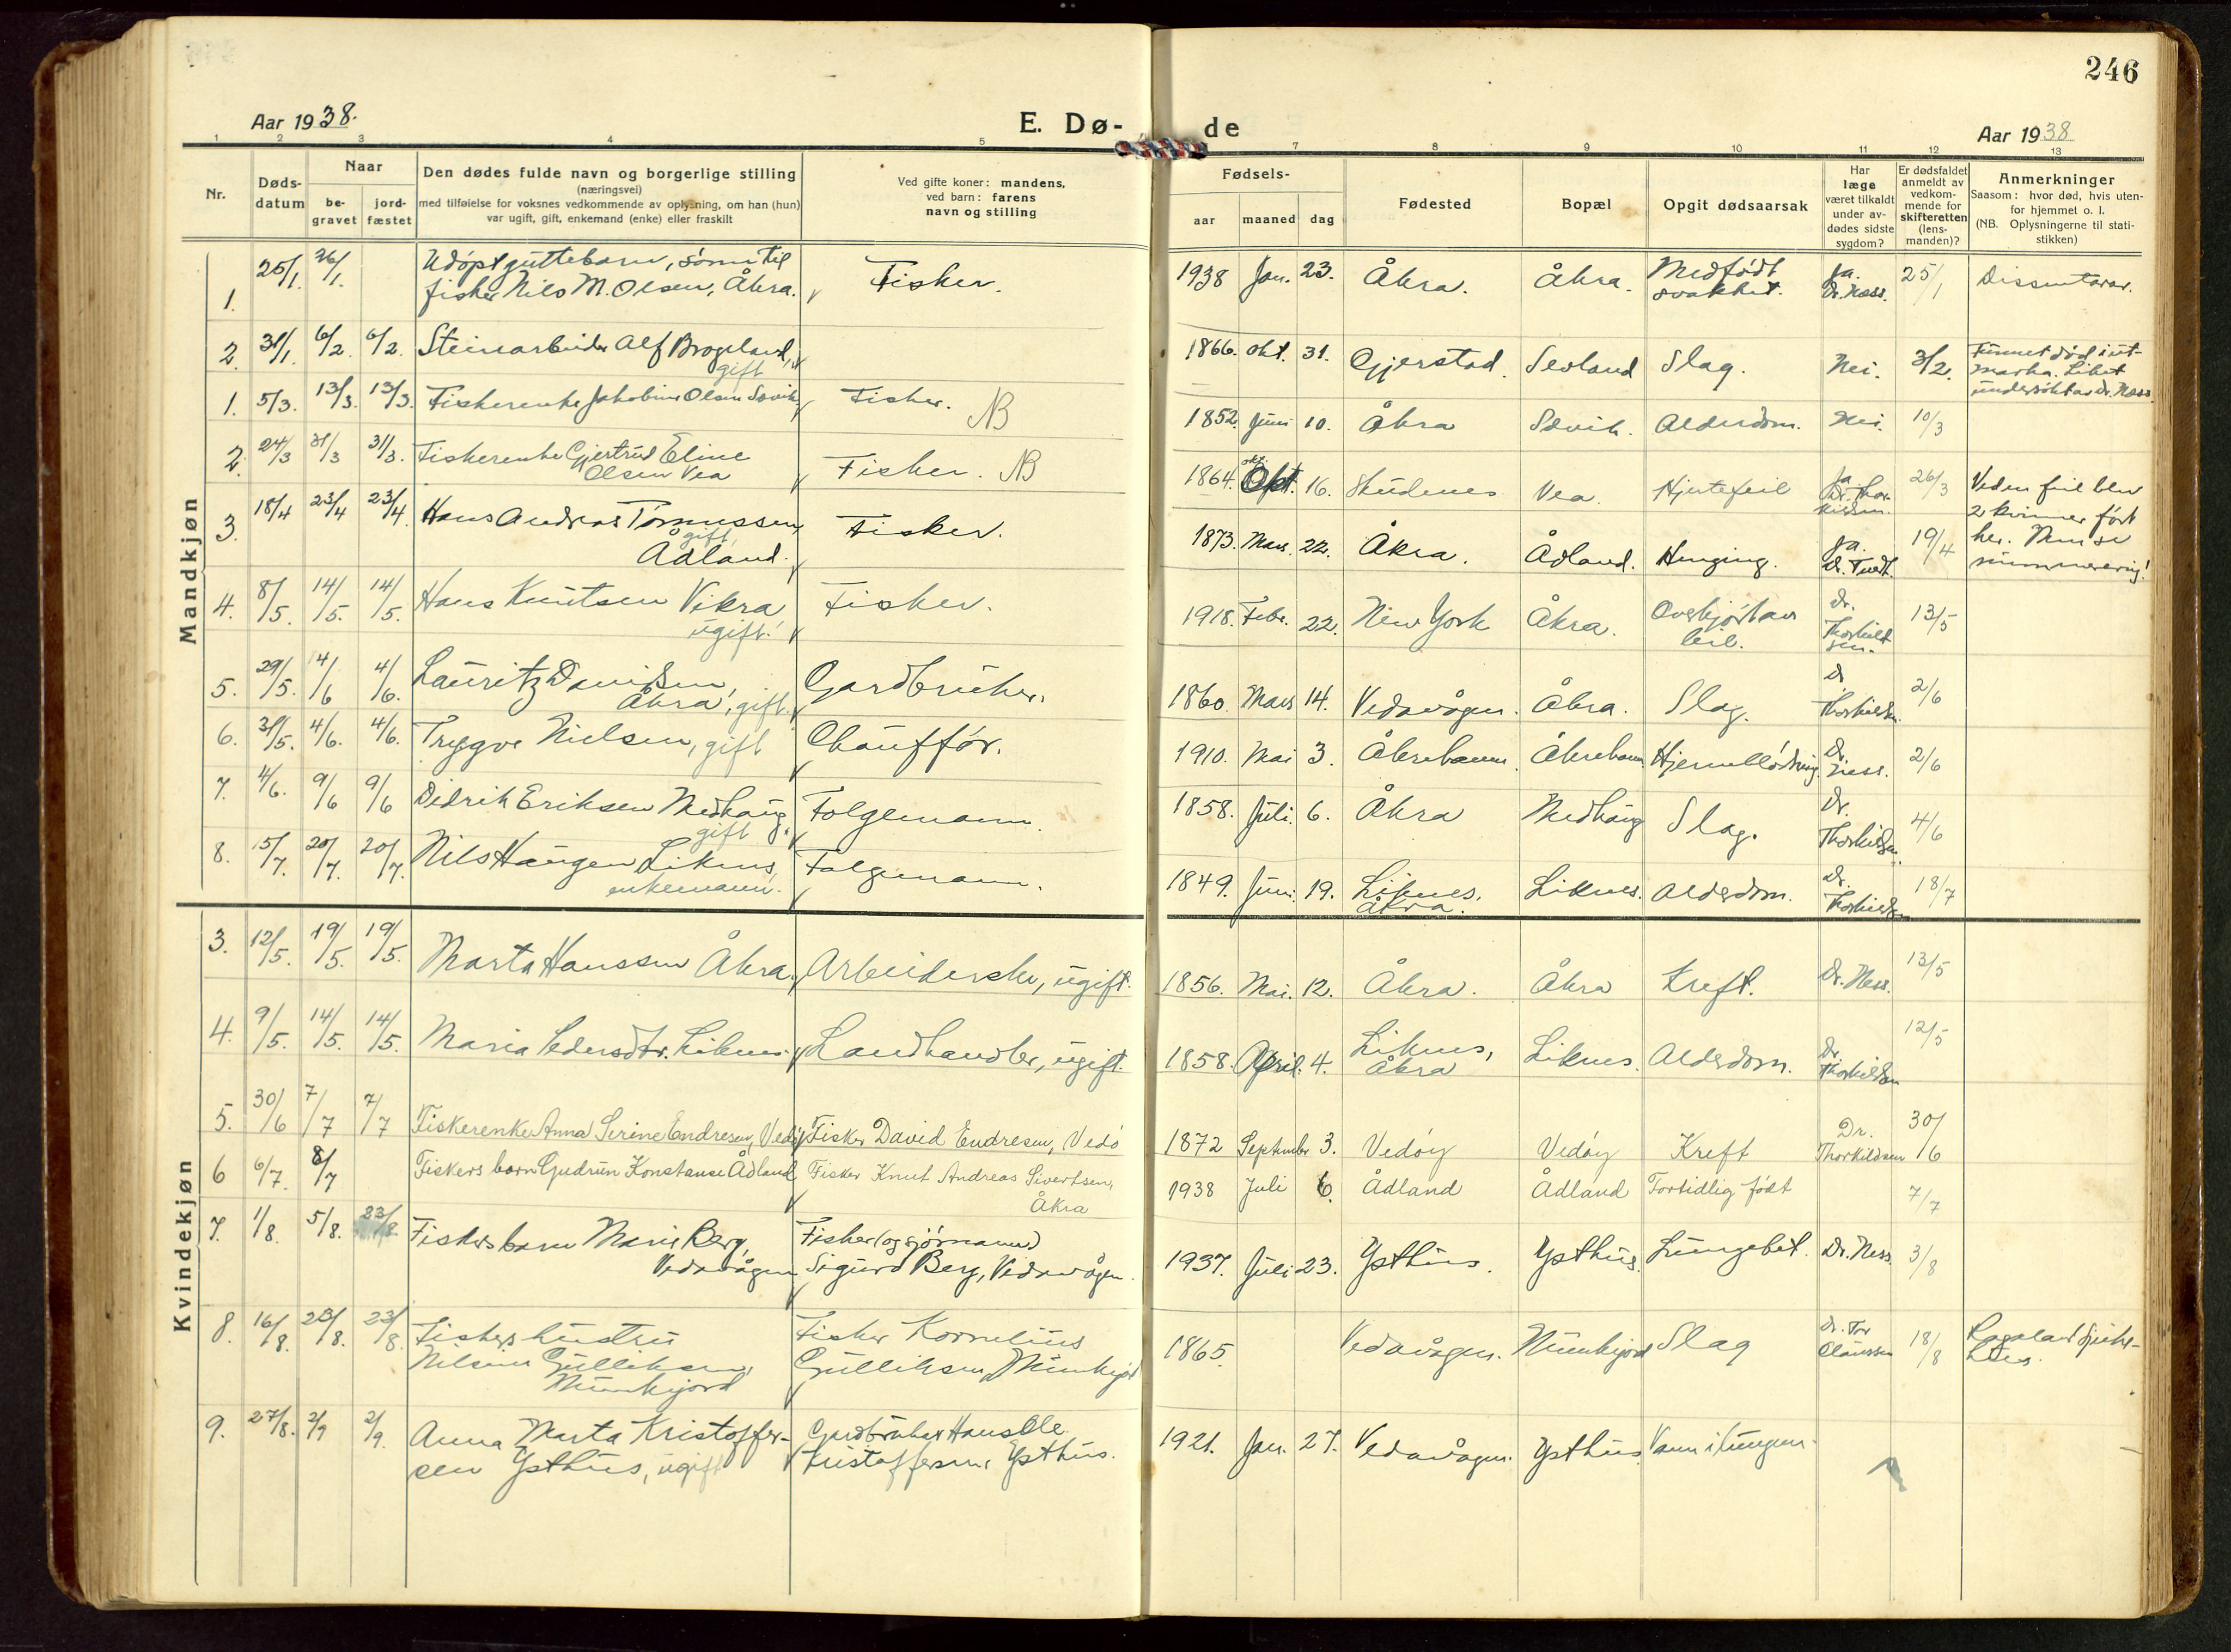 246
Aar 1938.
E. Dø-
de
Aar 1938
1 2 3 4 5 7 8 9 10 11 12 13
Nr.
Døds-
datum
Naar
be-
gravet
jord-
fæstet
Den dødes fulde navn og borgerlige stilling
(næringsvei)
med tilføielse for voksnes vedkommende av oplysning, om han (hun)
var ugift, gift, enkemand (enke) eller fraskilt
Ved gifte koner: mandens,
ved barn: farens
navn og stilling
Fødsels-
aar
maaned
dag
Fødested
Bopæl
Opgit dødsaarsak
Har
læge
været tilkaldt
under av-
dødes sidste
sygdom?
Er dødsfaldet
anmeldt av
vedkom-
mende for
skifteretten
(lens-
manden)?
Anmerkninger
Saasom: hvor død, hvis uten-
for hjemmet o. l.
(NB. Oplysningerne til stati-
stikken)
Mandkjøn
1. 25/1. 26/1. Udøpt guttebarn, sønn til
fisker Nils M. Olsen, Åkra. Fisker. 1938 Jan. 23. Åkra. Åkra. Medfødt
svakhet. Ja.
Dr. Næss. 25/1 Dissentarar.
2. 31/1. 6/2. 6/2. Steinarbeider Alf Brogeland,
gift 1866. Okt. 31. Gjerstad. Sevland Slag. Nei. 3/2. Funnet død i ut-
marka. Liket
undersökt av Dr. Næss.
1. 5/3. 13/3. 13/3. Fiskerenke Jakobine Olsen Sævik Fisker. NB 1852. Juni 10. Åkra Sævik. Alderdom. Nei. 10/3
2. 24/3 31/3 31/3. Fiskerenke Gjertrud Eline
Olsen Vea Fisker. NB 1864. Okt. 16. Skudenes Vea. Hjertefeil Ja
Dr. Thor
kildsen. 26/3 Ved en feil blev
2 kvinner ført
her.
nummerering!
3. 18/4 23/4 23/4. Hans Andreas Tomassen,
gift,
Ådland. Fisker. 1873. Mars. 22. Åkra. Ådland. Henging. Ja.
Dr. Tvedt. 19/4
4. 8/5. 14/5. 14/5. Hans Knutsen Vikra
ugift. Fisker. 1918. Febr. 22. New York Åkra. Overkjørt av
bil. Dr.
Thorkild
sen. 13/5
5. 29/5. 4/6 4/6. Lauritz Davidsen,
Åkra, gift. Gardbruker. 1860. Mars 14. Vedavågen. Åkra. Slag. Dr
Thorkildsen. 2/6
6. 31/5. 4/6. 4/6. Trygve Nielsen, gift Chauffør. 1910. Mai 3. Åkrehamn. Åkrehamn Hjerneblødning Dr.
Ness. 2/6
7. 4/6. 9/6 9/6 Didrik Eriksen Medhaug
gift. Folgemann. 1858. Juli. 6. Åkra Medhaug Slag. Dr.
Thorkildsen. 4/6
8. 15/7. 20/7. 20/7. Nils Haugen Liknes,
enkemann. Folgemann. 1849. Juni. 19. Liknes,
Åkra. Liknes. Alderdom. Dr.
Thorkildsen 18/7
Kvindekjøn
3. 12/5. 19/5. 19/5. Marta Hanssen Åkra. Arbeiderske, ugift. 1856. Mai. 12. Åkra. Åkra Kreft. Dr. Ness. 13/5
4. 9/5. 14/5. 14/5. Maria Pedersdtr. Liknes. Landhandler, ugift. 1858. April. 4. Liknes,
Åkra Liknes. Alderdom. Dr.
Thorkildsen 12/5
5. 30/6 7/7 7/7 Fiskerenke Anna Serine Endresen, Vedöy Fisker David Endresen, Vedö 1872 September 3. Vedöy Vedöy Kreft Dr.
Thorkildsen 30/6
6 6/7. 8/7 Fiskers barn Gudrun Konstanse Ådland Fisker Knut Andreas Sivertsen,
Åkra 1938 Juli 6. Ådland Ådland Fortidlig født 7/7
7. 1/8. 5/8. 23/8. Fiskers barn Marie Berg,
Vedavågen Fisker (og sjømann)
Sigurd Berg, Vedavågen. 1937. Juli 23. Ysthus. Ysthus. Lungebet. Dr. Ness. 3/8
8. 16/8. 23/8. 23/8. Fiskers hustru
Nilsine Gulliksen,
Munkejord Fisker Kornelius
Gulliksen, Munkejord 1865. Vedavågen. Munkejord Slag Dr. Tor
Claussen 18/8 Rogaland sjuke-
hus.
9. 27/8. 2/9 2/9. Anna Marta Kristoffer-
sen Ysthus, ugift Gardbruker Hans Ole
Kristoffersen, Ysthus. 1921. Jan. 27. Vedavågen. Ysthus Vann i lungen.